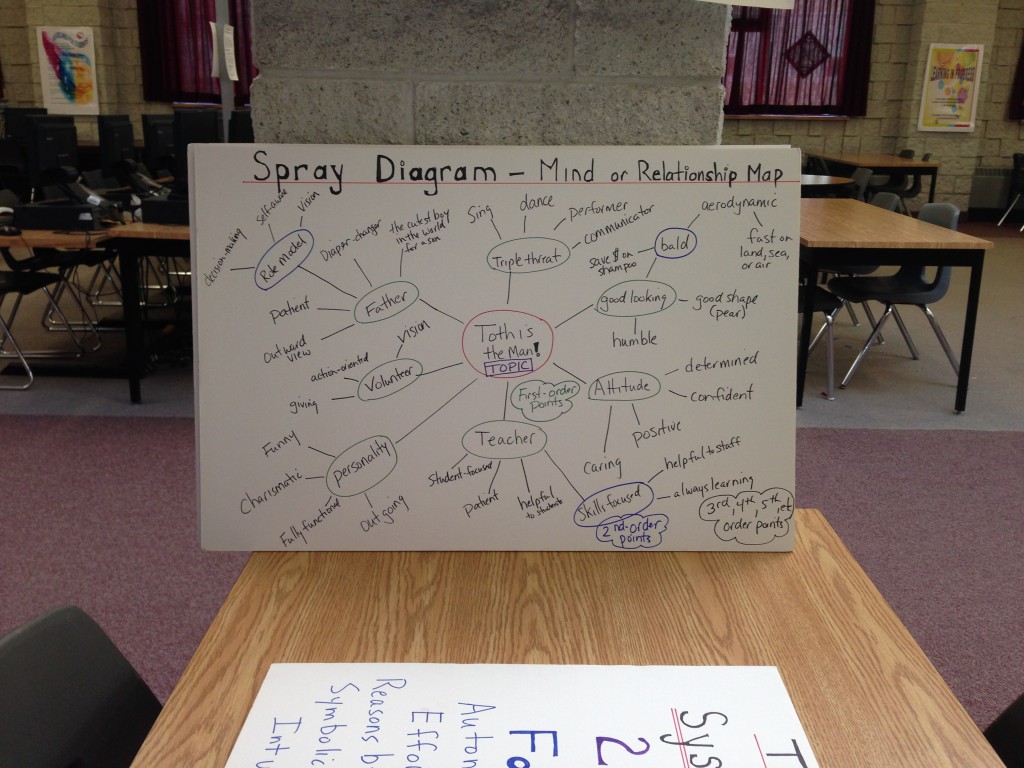 LEARNING IN PROGRESS
Spray Diagram – Mind or Relationship Map
self-aware
vision
decision-making
Role model
Diaper-changer
the cutest boy
in the world
for a son
Father
patient
outward
view
Sing
dance
performer
communicator
Triple threat
aerodynamic
fast on
land, sea,
or air
bald
save $ on
shampoo
good looking
good shape
(pear)
humble
Toth is
the Man!
TOPIC
First-order
points
vision
action-oriented
Volunteer
giving
Attitude
determined
confident
positive
caring
Funny
personality
Charismatic
Fully functional
Outgoing
Teacher
Student-focused
patient
helpful
to students
Skills focused
2nd-order
points
helpful to staff
always learning
3rd, 4th, 5th, etc
order points
Symbolic